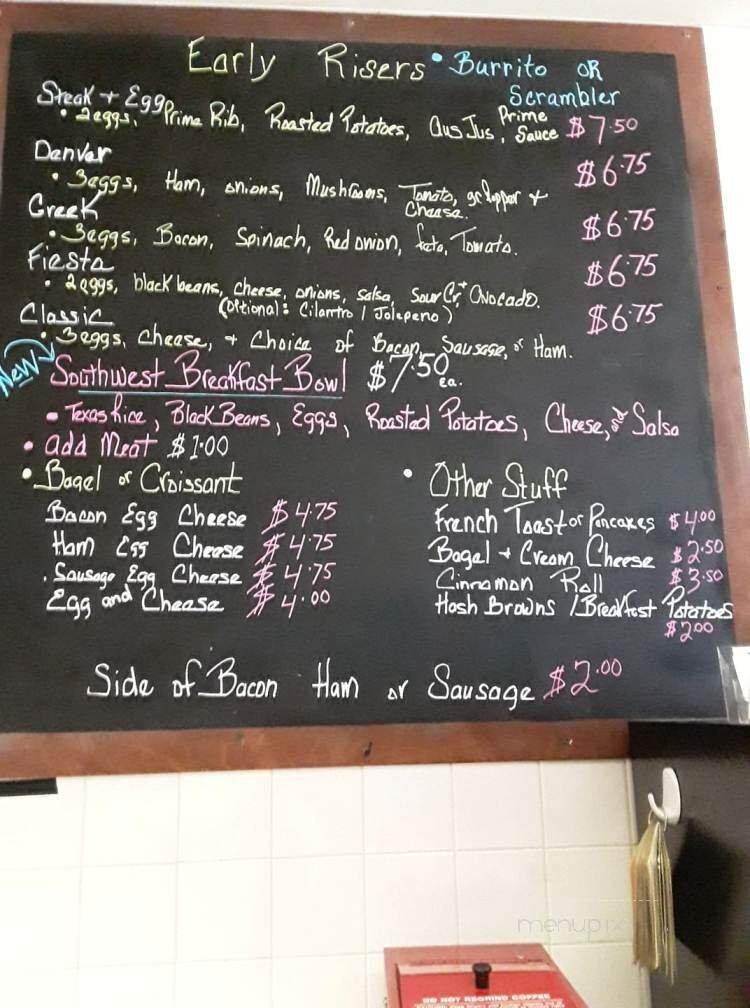 Early Risers • Burrito OR
Scrambler
Steak + Egg
• 2eggs, Prime Rib, Roasted Potatoes, Aus Jus, Prime Sauce $7.50
Denver $6.75
• 3eggs, Ham, onions, Mushrooms, Tomato, gr Pepper +
Cheese.
Greek $6.75
• 3eggs, Bacon, Spinach, Red onion, feta, Tomato.
Fiesta $6.75
• 2eggs, black beans, cheese, onions, salsa, Sour Cr, + Avocado.
(Optional: Cilantro / Jalepeno)
Classic $6.75
• 3eggs, Cheese, + Choice of Bacon, Sausage, or Ham.
New Southwest Breakfast Bowl $7.50 ea.
• Texas Rice, Black Beans, Eggs, Roasted Potatoes, Cheese, and Salsa
• add Meat $1.00
• Bagel or Croissant
Bacon Egg Cheese $4.75
Ham Egg Cheese $4.75
. Sausage Egg Cheese $4.75
Egg and Cheese $4.00
• Other Stuff
French Toast or Pancakes $4.00
Bagel + Cream Cheese $2.50
Cinnamon Roll $3.50
Hash Browns / Breakfast Potatoes
$2.00
Side of Bacon Ham or Sausage $2.00
menupix
DO NOT REGRIND COFFEE